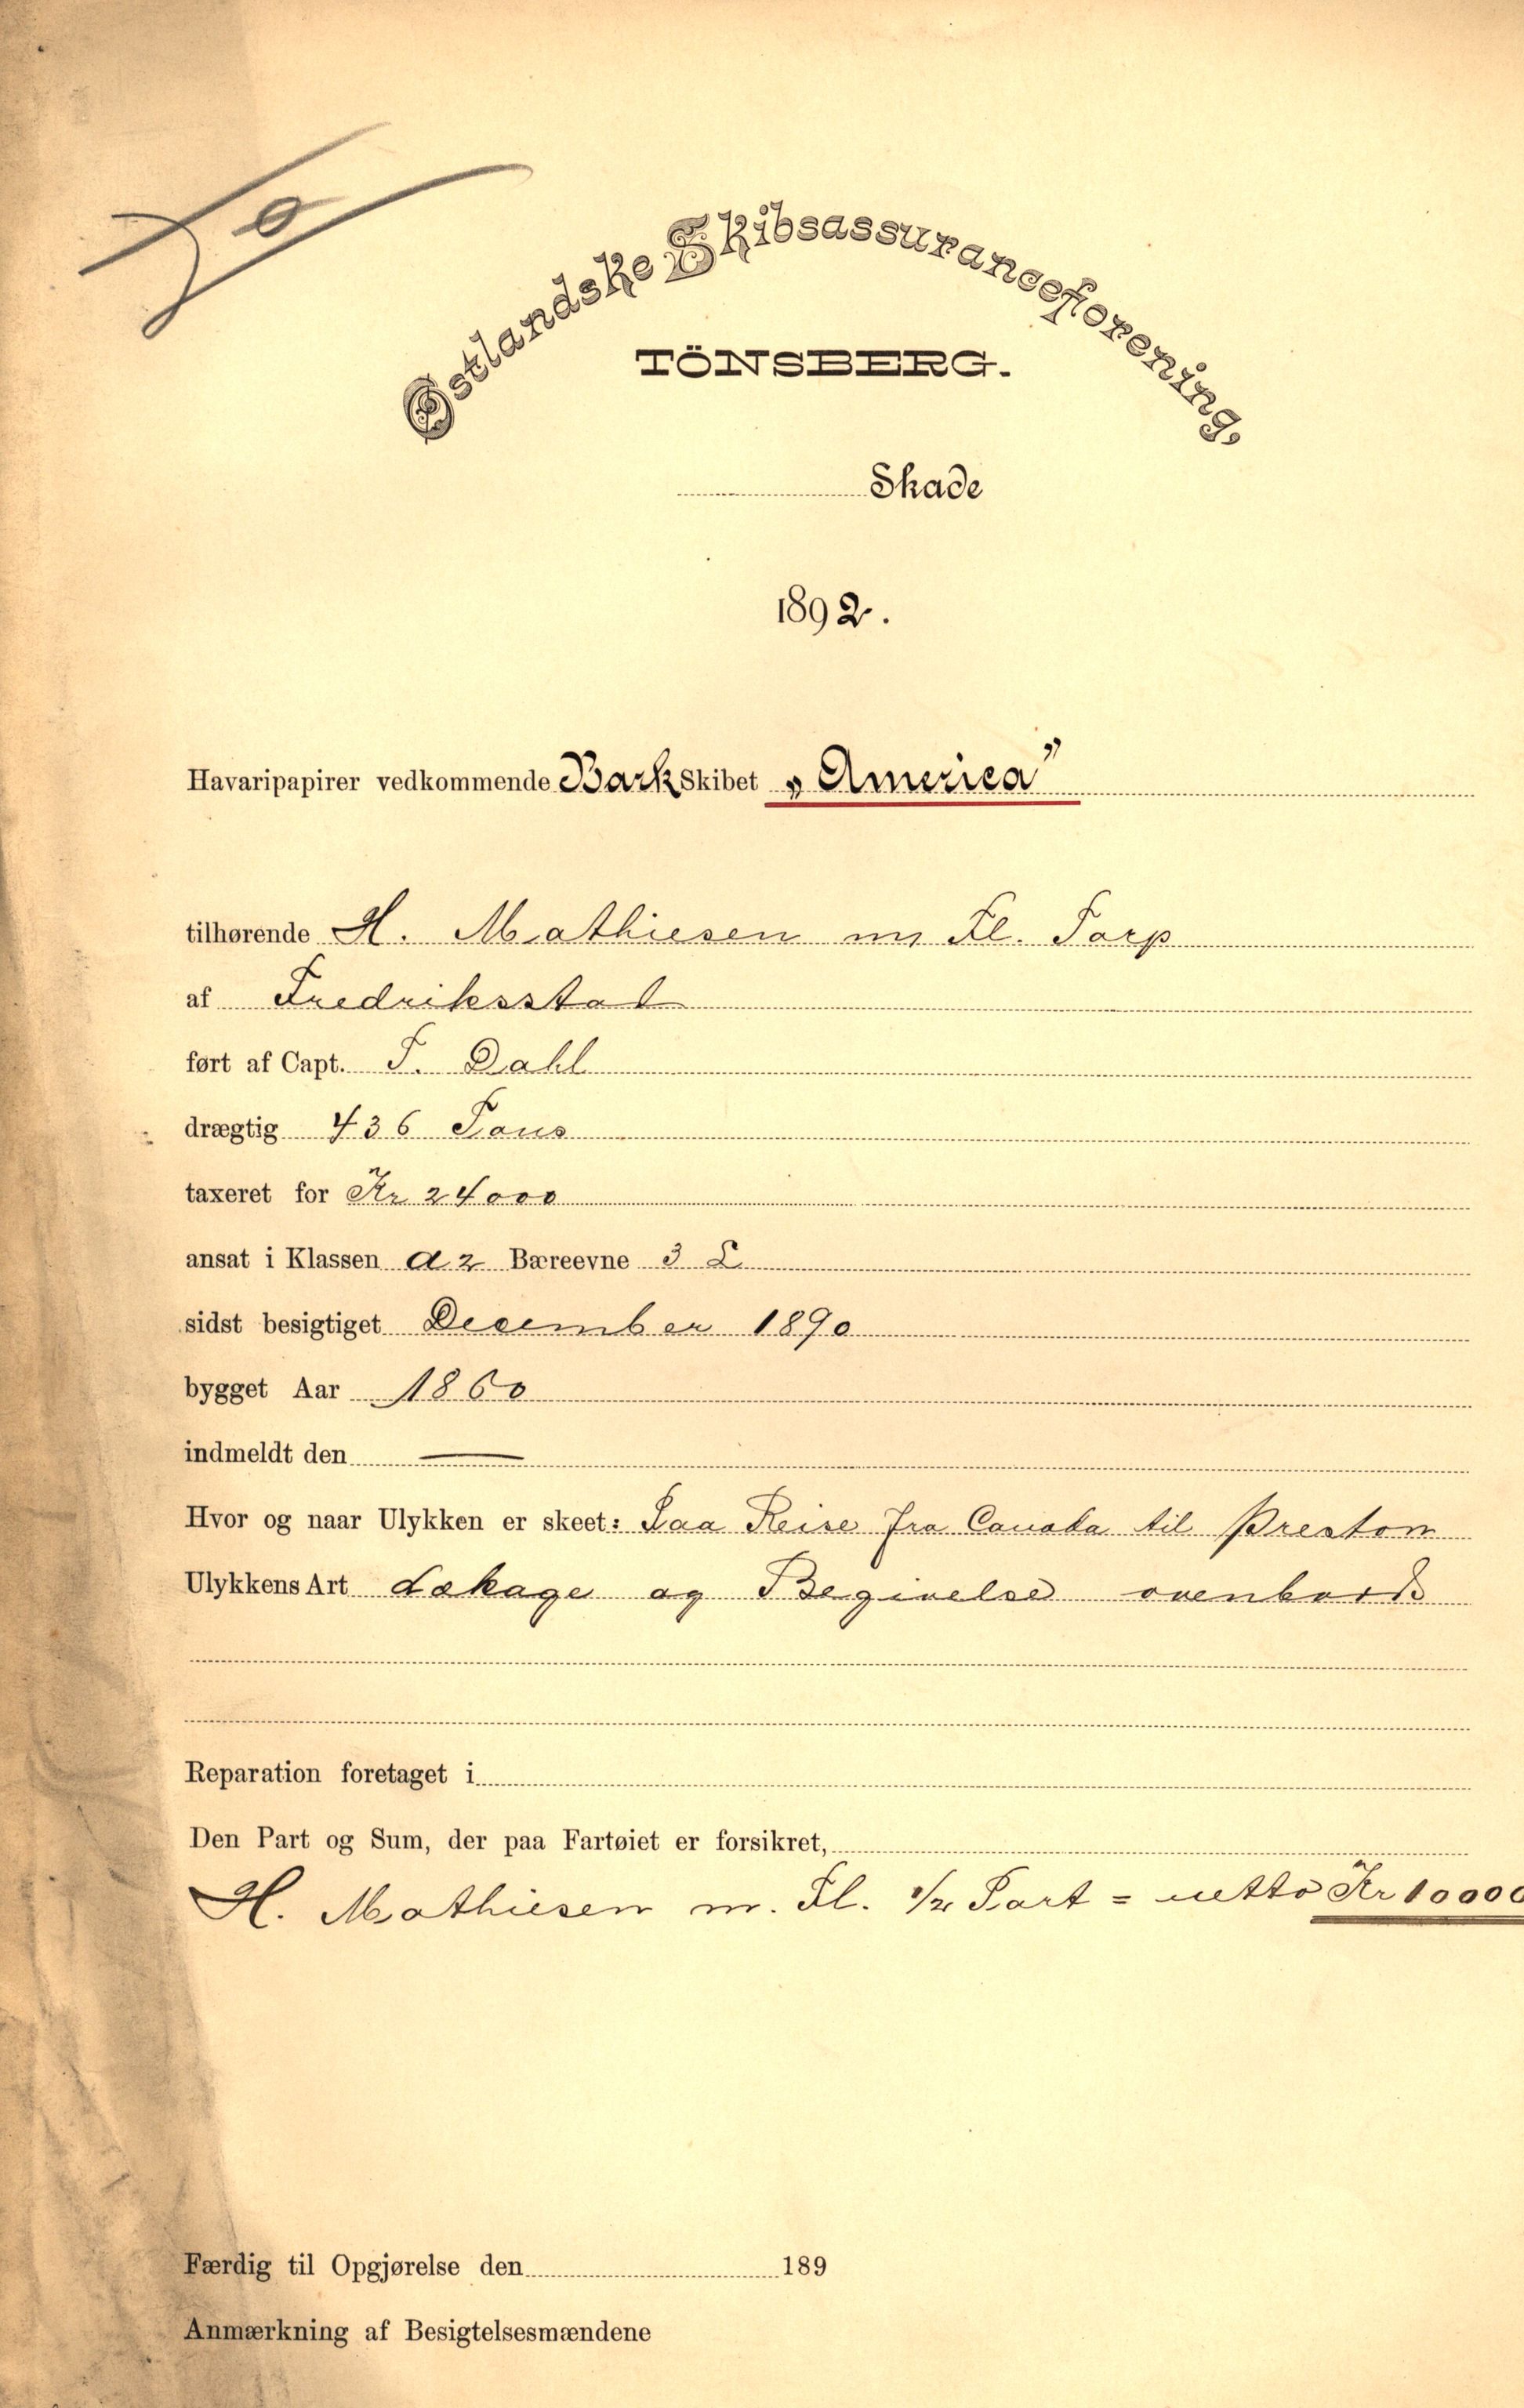 Østlandske Skibsassuranceforening,
TÖNSBERG.
Skade
1892.
Havaripapirer vedkommende Bark Skibet „America”
tilhørende H. Mathiesen m Fl. Torp
af Fredriksstad
ført af Capt. T. Dahl
drægtig 436 Tons
taxeret for Kr 24000
ansat i Klassen A2 Bæreevne 3 L
sidst besigtiget December 1890
bygget Aar 1860
indmeldt den —
Hvor og naar Ulykken er skeet: Paa Reise fra Canada til Preston
Ulykkens Art Lækage og Begivelse ovenbords
Reparation foretaget i
Den Part og Sum, der paa Fartøiet er forsikret,
H. Mathiesen m. Fl. 1/2 Part = netto Kr 10000
Færdig til Opgjørelse den 189
Anmærkning af Besigtelsesmændene